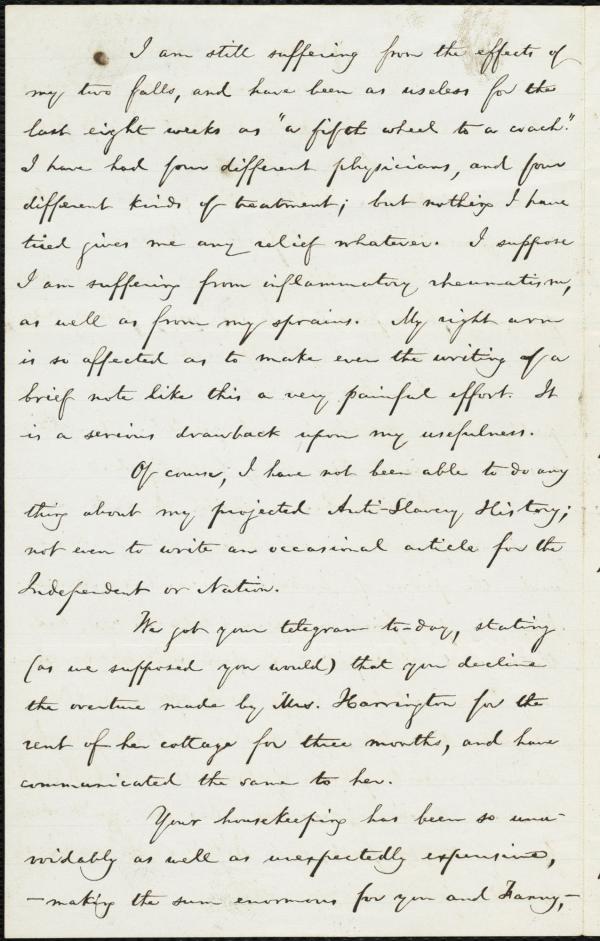 I am still suffering from the effects of
my two falls, and have been as useless for the
last eight weeks as "a fifth wheel to a coach."
I have had four different physicians, and four
different kinds of treatment; but nothing I have
tried gives me any relief whatever. I suppose
I am suffering from inflammatory rheumatism,
as well as from my sprains. My right arm
is so affected as to make even the writing of a
brief note like this a very painful effort. It
is a serious drawback upon my usefulness.
Of course, I have not been able to do any
thing about my projected Anti-Slavery History;
not even to write an occasional article for the
Independent or Nation.
We got your telegram to-day, stating
(as we supposed you would) that you decline
the overture made by Mrs. Harrington for the
rent of her cottage for three months, and have
communicated the same to her.
Your housekeeping has been so una-
voidably as well as unexpectedly expensive,
—making the sum enormous for you and Fanny,—